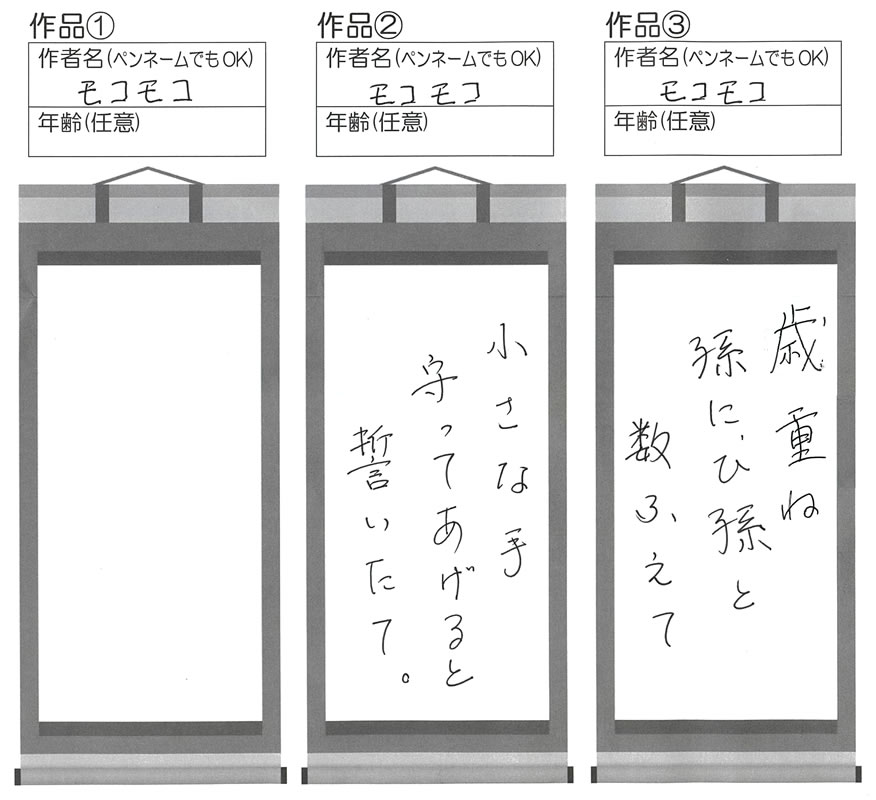 作品①
作者名(ペンネームでもOK)
モコモコ
年齢(任意)
作品②
作者名(ペンネームでもOK)
モコモコ
年齢(任意)
小さな手
守ってあげると
誓いたて。
作品③
作者名(ペンネームでもOK)
モコモコ
年齢(任意)
歳重ね
孫に、ひ孫と
数ふえて